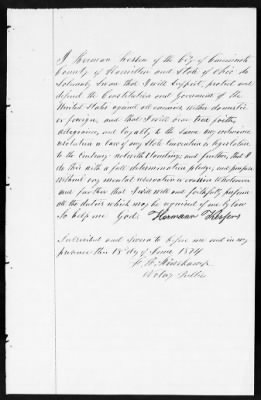 I Herman of the City of Cincinnati
County of Hamilton and State of Ohio do
solemnly swear that I will support, protect and
defend the Constitution and Government of the
United States against all enemies whether domestic
or foreign, and that I will bear true faith,
allegiance, and loyalty to the same any ordinance
resolution or law of any State Convention or legislature
to the contrary notwithstanding; and further, that I
do this with a full determination, pledge, and purpose
without any mental reservation or evasion whatsoever
and further that I will well and faithfully perform
all the duties which may be required of me by law
So help me God. Hermann
Subscribed and sworn to before me and in my
presence this 18 day of June 1874
Notary Public